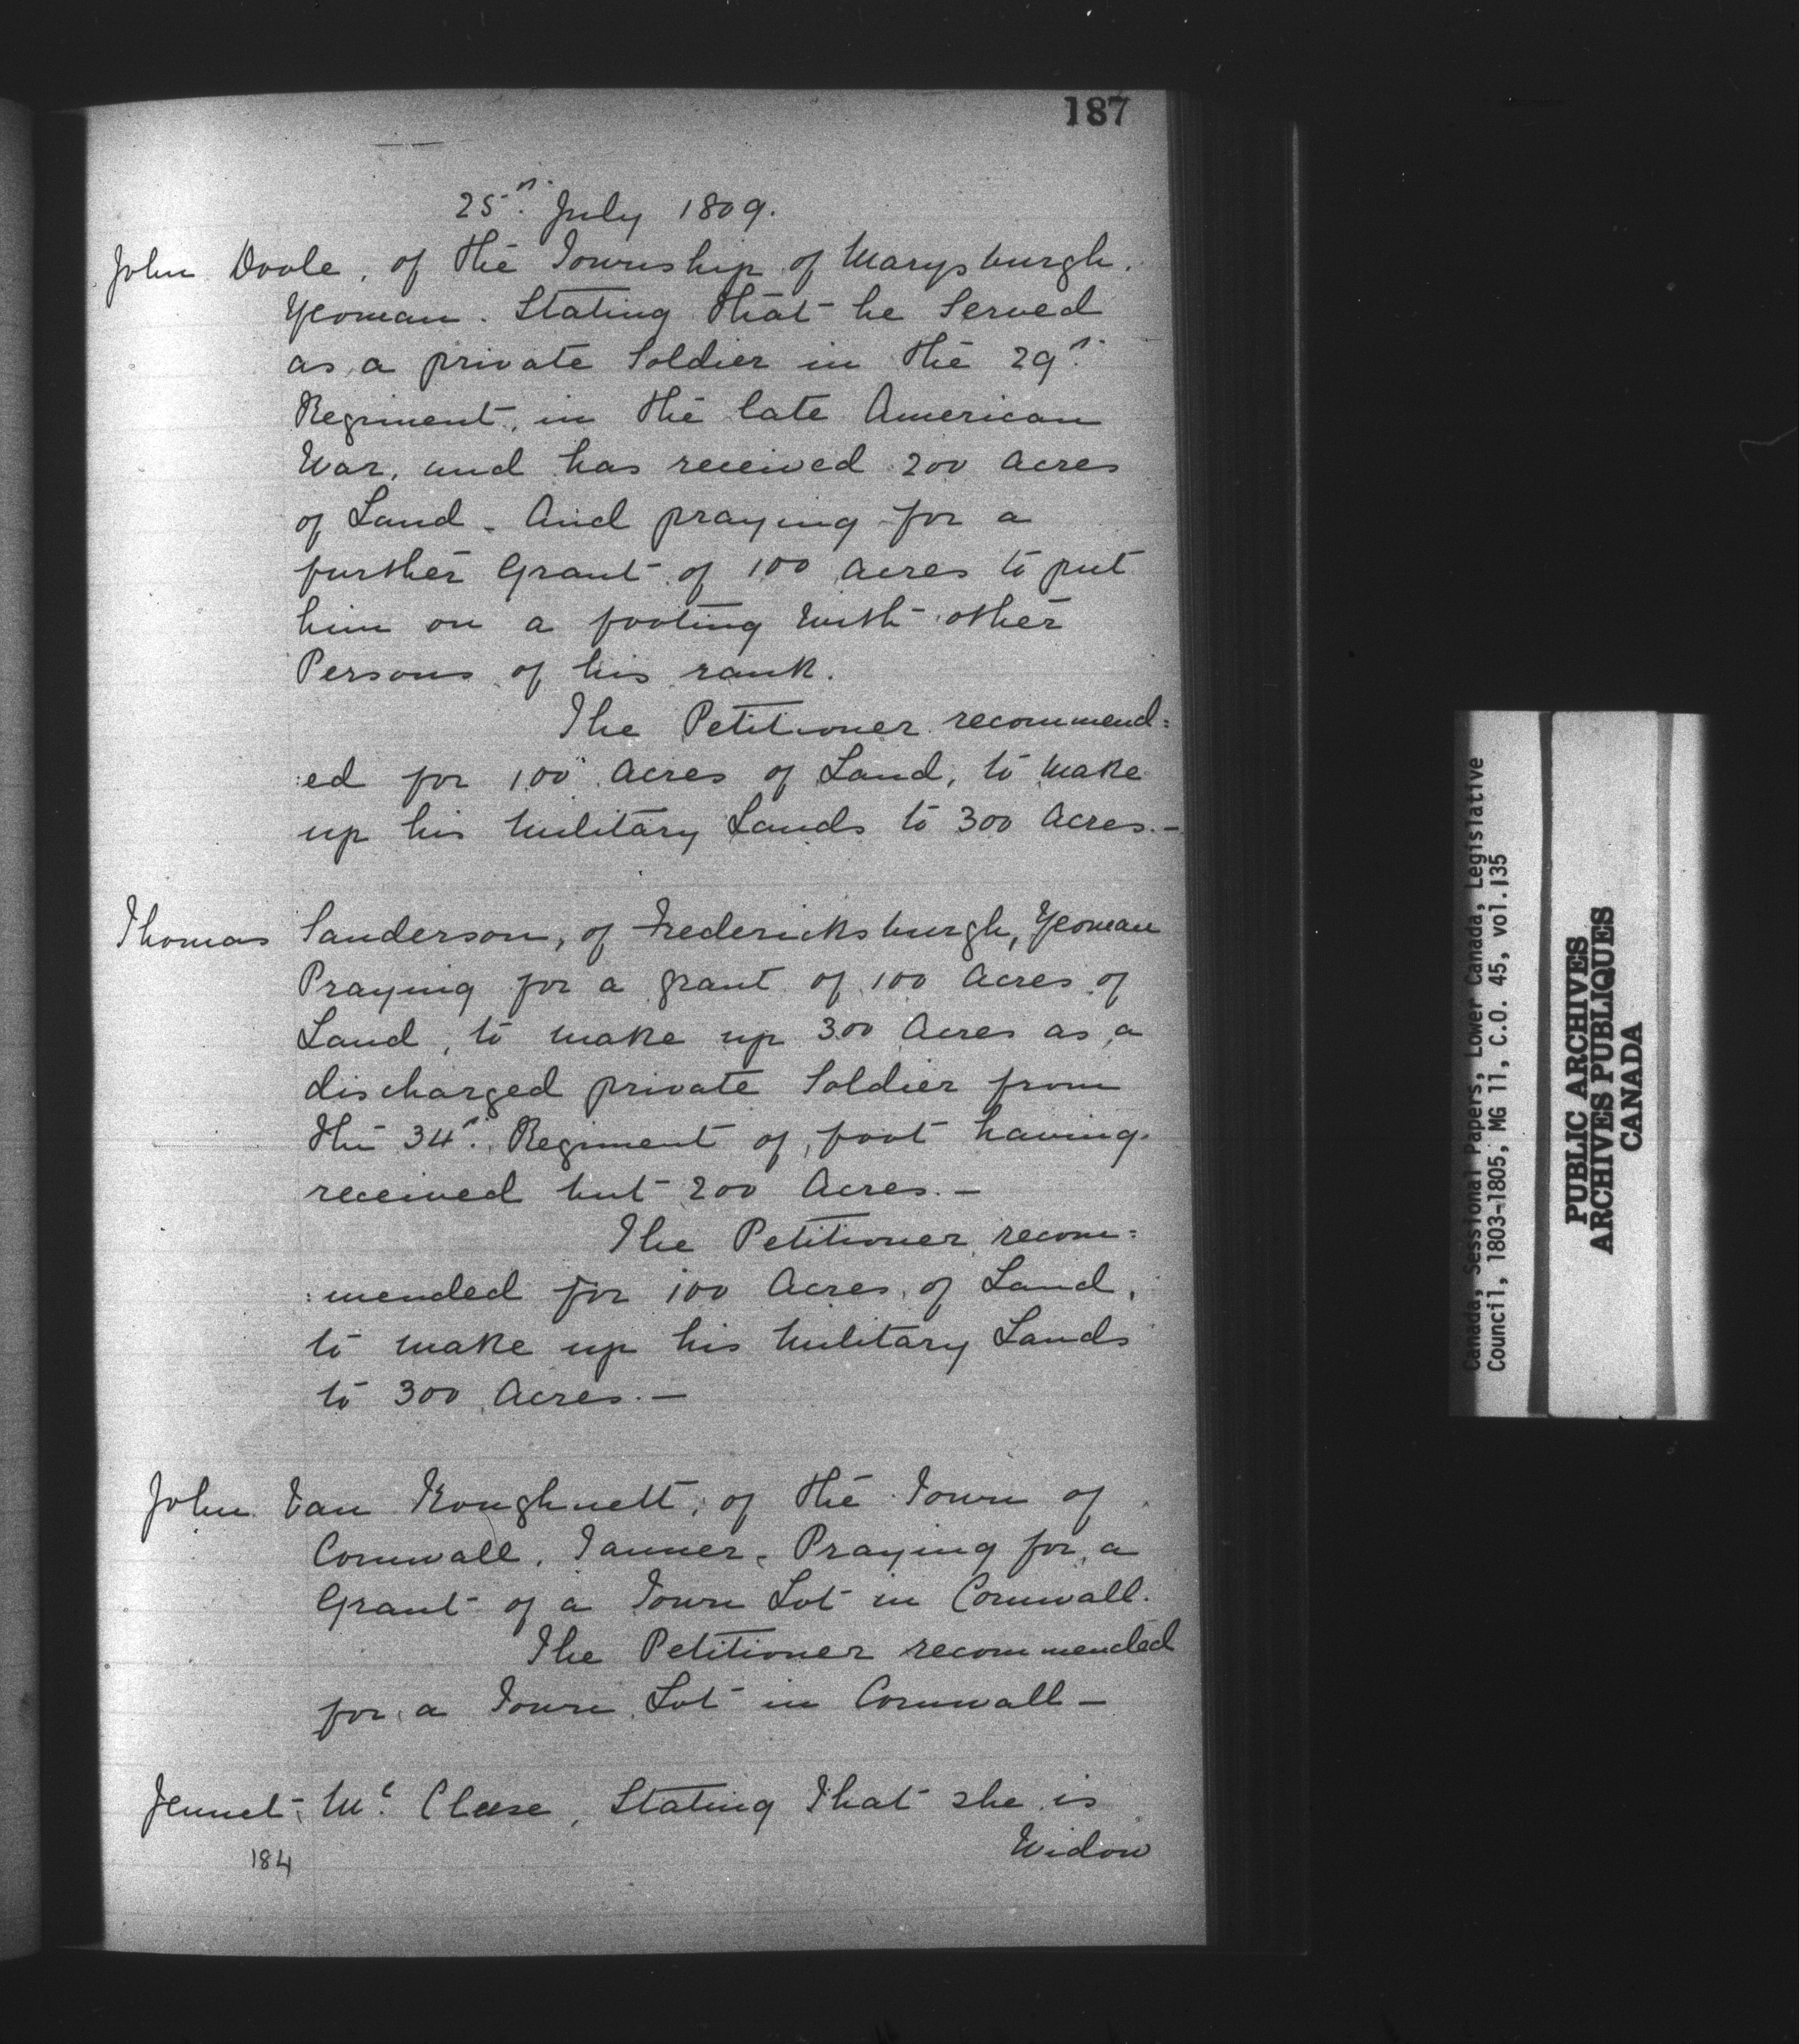 187
25th. July 1809.
John Doole, of the Township of Marysburgh.
Yeoman. Stating that he Served
as a private Soldier in the 29th.
Regiment, in the late American
War, and has received 200 acres
of Land - And praying for a
further Grant of 100 acres to put
him on a footing with other
Persons of his rank.
The Petitioner recommend=
:ed for 100 Acres of Land, to make
up his Military Lands to 300 Acres.-
Thomas Sanderson, of Fredericksburgh, Yeoman
Praying for a grant of 100 Acres of
Land, to make up 300 Acres as a
discharged private Soldier from
the 34th. Regiment of foot having
received but 200 Acres.-
The Petitioner recom=
:mended for 100 Acres of Land,
to make up his Military Lands
to 300 Acres.-
John Van Koughnett, of the Town of
Cornwall, Tanner, Praying for a
Grant of a Town Lot in Cornwall.
The Petitioner recommended
for a Town Lot in Cornwall -
Jennet Mc. Clese, Stating that she is
Widow
184
Canada, Sessional Papers, Lower Canada, Legislative
Council, 1803-1805, MG 11, C.O. 45, vol.135
PUBLIC ARCHIVES
ARCHIVES PUBLIQUES
CANADA